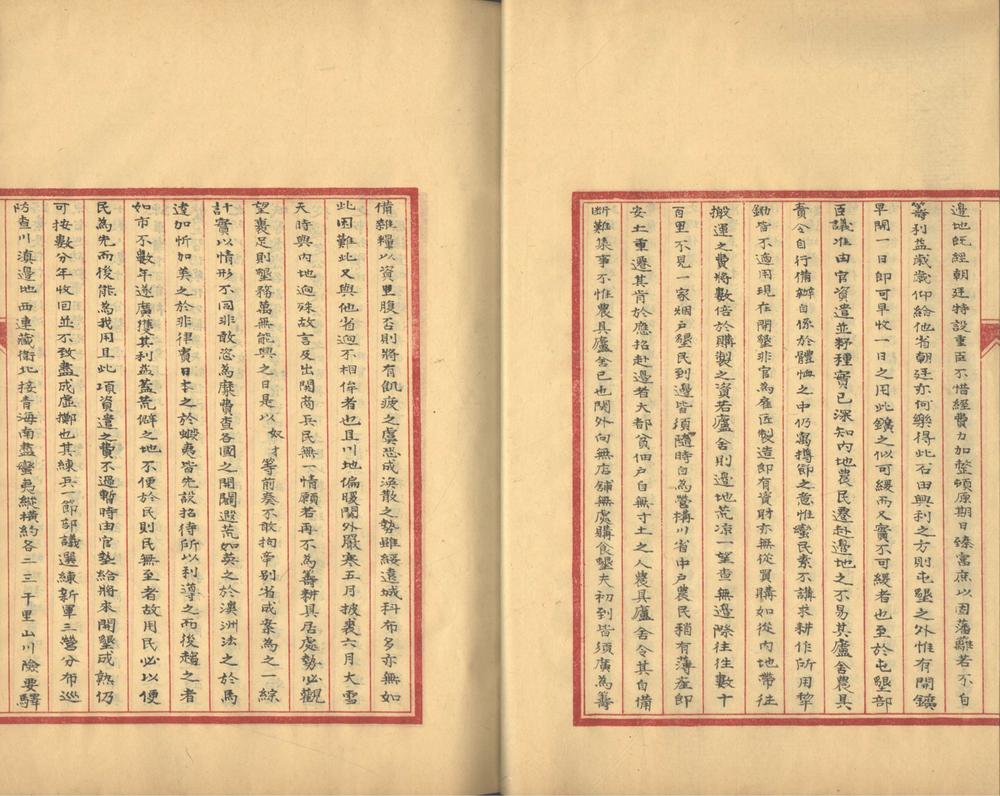 邊地既經朝廷特設重臣不惜經費力加整頓原期日臻富庶以固藩籬若不自
籌利益歲歲仰給他省朝廷亦何樂得此石田興利之方則屯墾之外惟有開鑛
早開一日即可早收一日之用此鑛之似可緩而又實不可緩者也至於屯墾部
臣議准由官資遣並籽種實已深知內地農民遷赴邊地之不易其廬舍農具
責令自行備辦自係於體恤之中仍寓撙節之意惟蠻民素不講求耕作所用犂
鋤皆不適用現在開墾非官為雇匠製造即有資財亦無從買購如從內地帶往
搬運之費將數倍於購製之資若廬舍則邊地荒凉一望查無邊際往往數十
百里不見一家烟戶墾民到邊皆須隨時自為營構川省中戶農民稍有薄產即
安土重遷其肯於應招赴邊者大都貧佃戶自無寸土之人農具廬舍令其自備
斷難集事不惟農具廬舍已也關外向無店舖無處購食墾夫初到皆須廣為籌
備雜糧以資果腹否則將有飢疲之虞恐成渙散之勢雖綏遠城科布多亦無如
此困難此又與他省逈不相侔者也且川地偏暖關外嚴寒五月披裘六月大雪
天時與內地逈殊故言及出關苟兵民無一情願若再不為籌耕具居處勢必觀
望裹足則墾務萬無能興之日是以奴才等前奏不敢拘牽別省成案為之一綜
計實以情形不同非敢恣為糜費查各國之開闢遐荒如英之於澳洲法之於馬
達加斯加美之於非律賓日本之於蝦夷皆先設招待所以利導之而後趨之者
如市不數年遂廣獲其利益蓋荒僻之地不便於民則民無至者故用民必以便
民為先而後能為我用且此項資遣之費不過暫時由官墊給將來開墾成熟仍
可按數分年收回並不致盡成虛擲也其練兵一節部議選練新軍三營分布巡
防查川滇邊地西連藏衛北接青海南盡蠻夷縱橫約各二三千里山川險要驛